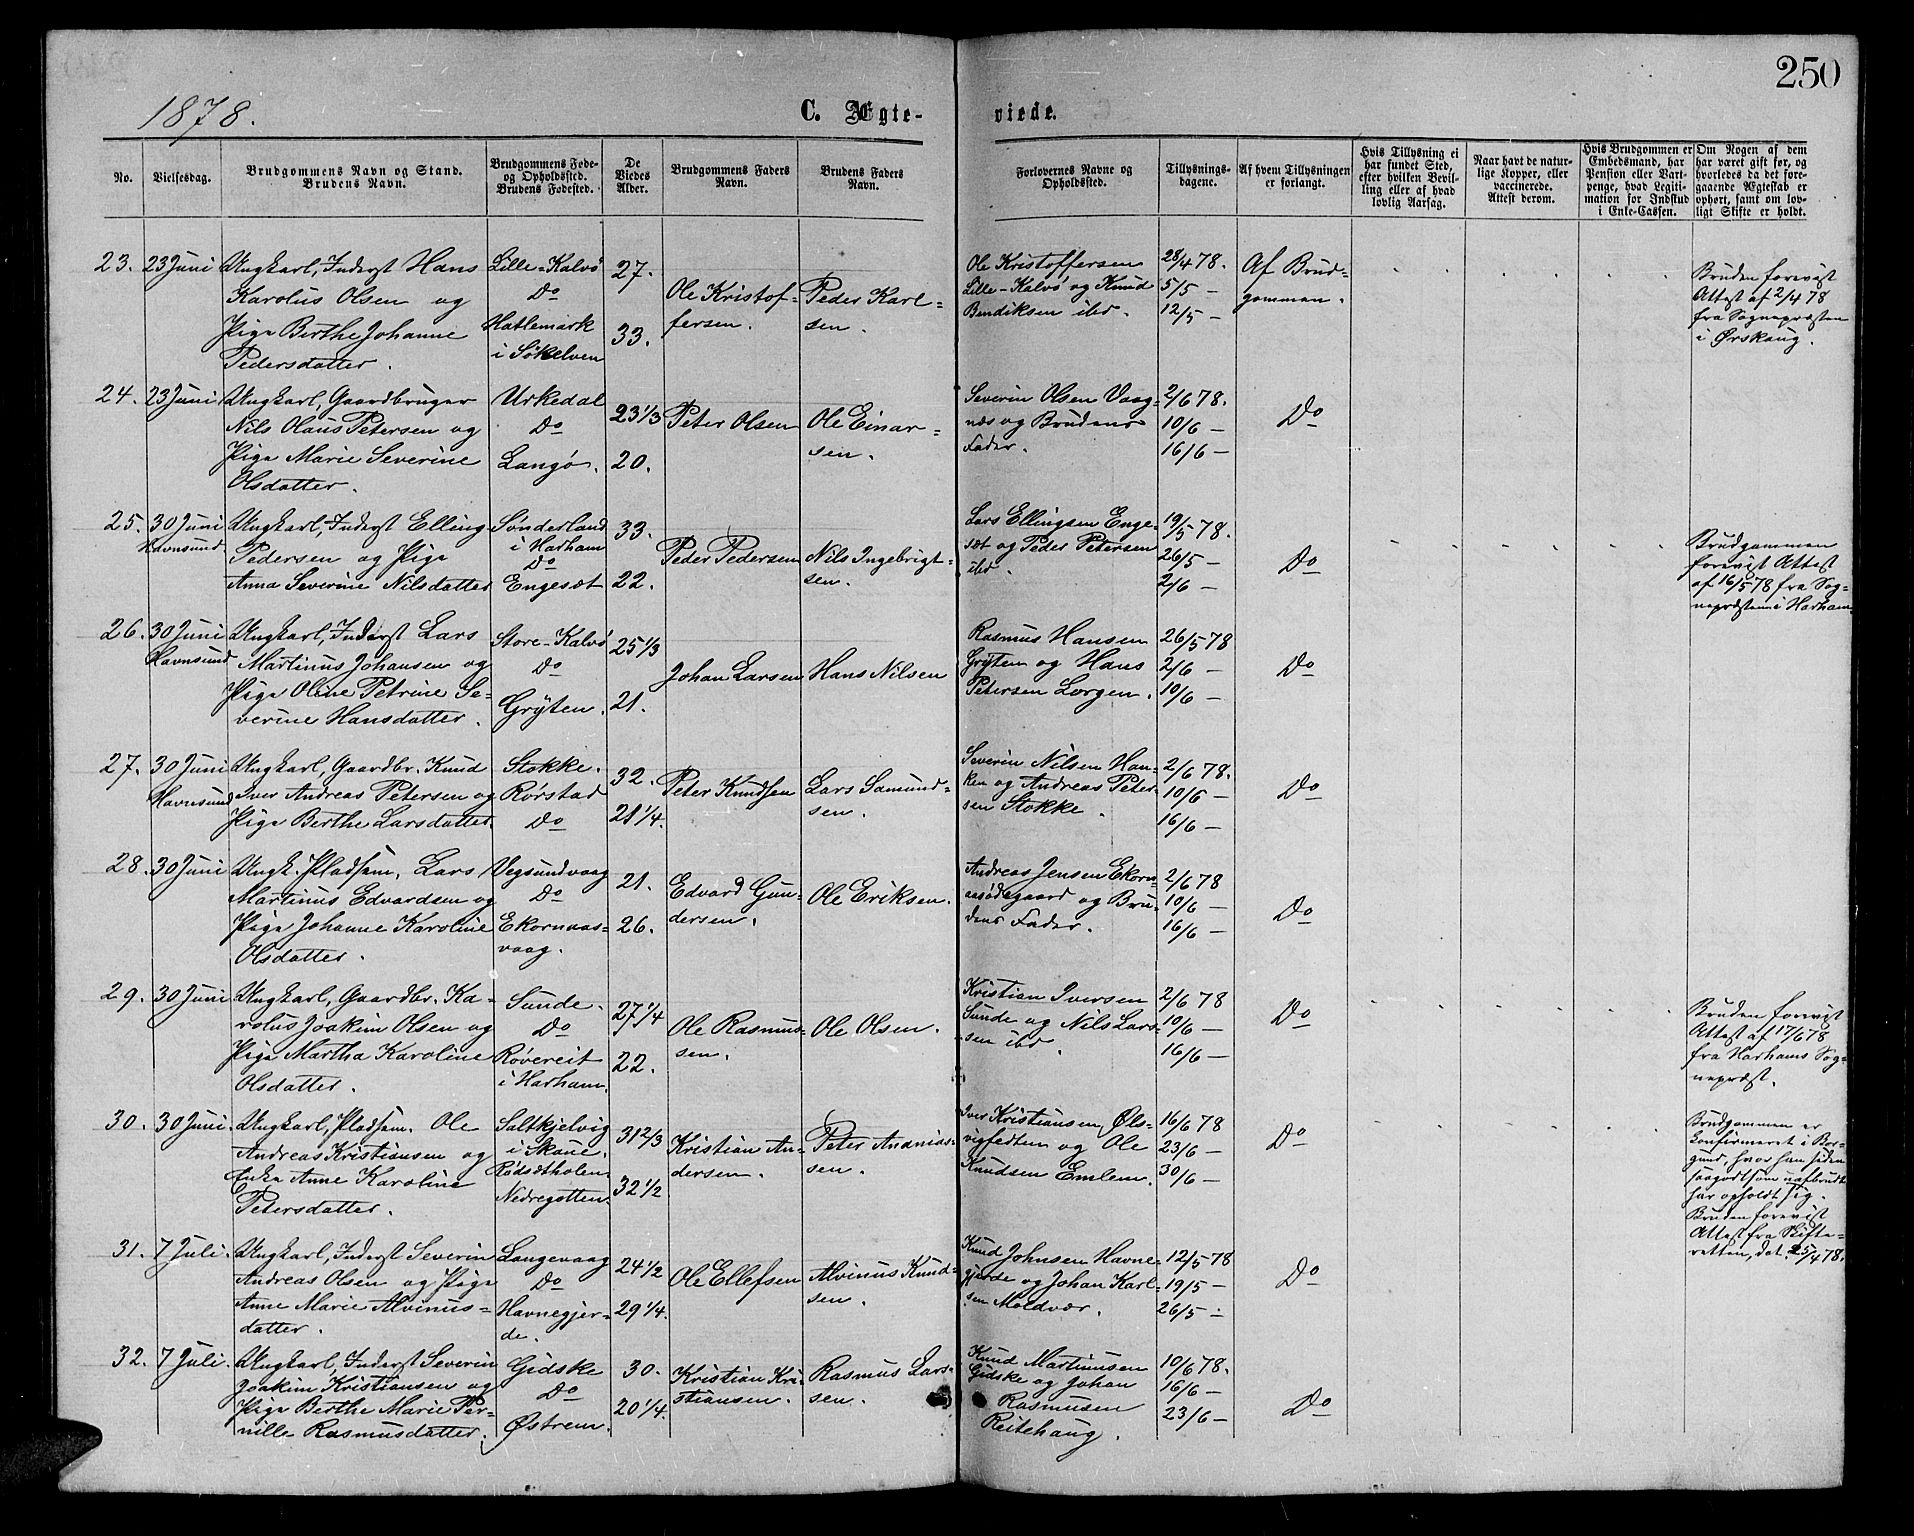 250
1878.
C. Ægte-
viede.
No.
Vielsesdag.
Brudgommens Navn og Stand.
Brudens Navn.
Brudgommens Føde-
og Opholdssted.
Brudens Fødested.
De
Viedes
Alder.
Brudgommens Faders
Navn.
Brudens Faders
Navn.
Forlovernes Navne og
Opholdssted.
Tillysnings-
dagene.
Af hvem Tillysningen
er forlangt.
Hvis Tillysning ei
har fundet Sted,
efter hvilken Bevil-
ling eller af hvad
lovlig Aarsag.
Naar havt de natur-
lige Kopper, eller
vaccinerede.
Attest derom.
Hvis Brudgommen er
Embedsmand, har
Pension eller Vart-
penge, hvad Legiti-
mation for Indskud
i Enke-Cassen.
Om Nogen af dem
har været gift før, og
hvorledes da det fore-
gaaende Ægteskab er
ophørt, samt om lov-
ligt Skifte er holdt.
23.
23 Juni
Ungkarl, Inderst Hans
Karolus Olsen og
Pige Berthe Johanne
Pedersdatter.
Lille-Kalvø
Do
Hatlemark
i Søkelven
27.
33.
Ole Kristof-
fersen.
Peder Karl-
sen.
Ole Kristoffersen
Lille-Kalvø og Knud
Bendiksen ibd.
28/4 78.
5/5 -
12/5 -
Af Brud-
gommen.
Bruden forevist
Attest af 2/4 78
fra Sognepræsten
i Ørskoug.
24.
23 Juni
Ungkarl, Gaardbruger
Nils Olaus Petersen og
Pige Marie Severine
Olsdatter.
Urkedal
Do
Langø.
23 1/3
20.
Peter Olsen
Ole Einar-
sen.
Severin Olsen Vaag-
næs og Brudens
Fader.
2/6 78.
10/6 -
16/6 -
Do
25.
30 Juni
Havnsund
Ungkarl, Inderst Elling
Pedersen og Pige
Anna Severine Nilsdatter
Sønderland
i Harham
Do
Engesæt
33.
22.
Peder Pedersen
Nils Ingebrigt-
sen.
Lars Ellingsen Enge-
sæt og Peder Petersen
ibd.
19/5 78.
26/5 -
2/6 -
Do
Brudgommen
forevist Attest
af 16/5 78 fra Sog-
nepræsten i Harham
26.
30 Juni
Havnsund
Ungkarl, Inderst Lars
Martinus Johansen og
Pige Oline Petrine Se-
verine Hansdatter.
Store-Kalvø
Do
Grÿten.
25 1/3
21.
Johan Larsen
Hans Nilsen
Rasmus Hansen
Grÿten og Hans
Petersen Lorgen.
26/5 78
2/6 -
10/6 -
Do
27.
30 Juni
Havnsund
Ungkarl, Gaardbr. Knud
Iver Andreas Petersen og
Pige Berthe Larsdatter.
Stokke.
Rørstad
Do
32.
21 1/4.
Peter Knudsen
Lars Samund-
sen.
Severin Nilsen Han-
ken og Andreas Peter-
sen Stokke.
2/6 78.
10/6 -
16/6 -
Do
28.
30 Juni
Ungk. Pladsm. Lars
Martinus Edvardsen og
Pige Johanne Karoline
Olsdatter.
Vegsundvaag
Do
Ekornaas-
vaag.
21.
26.
Edvard Gun-
dersen.
Ole Eriksen.
Andreas Jensen Ekorn-
aasødegaard og Bru-
dens Fader.
2/6 78
10/6 -
16/6 -
Do
29.
30 Juni
Ungkarl, Gaardbr. Ka-
rolus Joakim Olsen og
Pige Martha Karoline
Olsdatter.
Sunde.
Do
Røvereit
i Harham.
27 1/4
22.
Ole Rasmus-
sen.
Ole Olsen.
Kristian Iversen
Sunde og Nils Lars-
sen ibd.
2/6 78
10/6 -
16/6 -
Do
Bruden forevist
Attest af 17/6 78
fra Harhams Sog-
nepræst.
30.
30 Juni.
Ungkarl, Pladsm. Ole
Andreas Kristiansen og
Enke Anne Karoline
Petersdatter.
Saltkjelvig
i Skaue.
Rødsætholen
Nedregotten.
31 2/3
32 1/2
Kristian An-
dersen.
Peter Ananias-
sen.
Iver Kristiansen Øls-
vigfedten og Ole
Knudsen Emlem.
16/6 78
23/6 -
30/6 -
Do
Brudgommen er
konfirmeret i Bor-
gund, hvor han siden
saagodtsom uafbrudt
har opholdt sig.
Bruden forevist
Attest fra Skifte-
retten, dat. 25/4 78.
31.
7 Juli.
Ungkarl, Inderst Severin
Andreas Olsen og Pige
Anne Marie Alvinus-
datter.
Langevaag
Do
Havnegjer-
de.
24 1/2
29 1/4.
Ole Ellefsen
Alvinus Knud-
sen.
Knud Johnsen Havne-
gjerde og Johan Karl-
sen Moldvær.
12/5 78
19/5 -
26/5 -
Do
32.
7 Juli.
Ungkarl, Inderst Severin
Joakim Kristiansen og
Pige Berthe Marie Per-
nille Rasmusdatter.
Gidske
Do
Østrem.
30.
20 1/4.
Kristian Kri-
stiansen.
Rasmus Lars-
sen.
Knud Martinusen
Gidske og Johan
Rasmusen
Reitehaug.
10/6 78.
16/6 -
23/6 -
Do